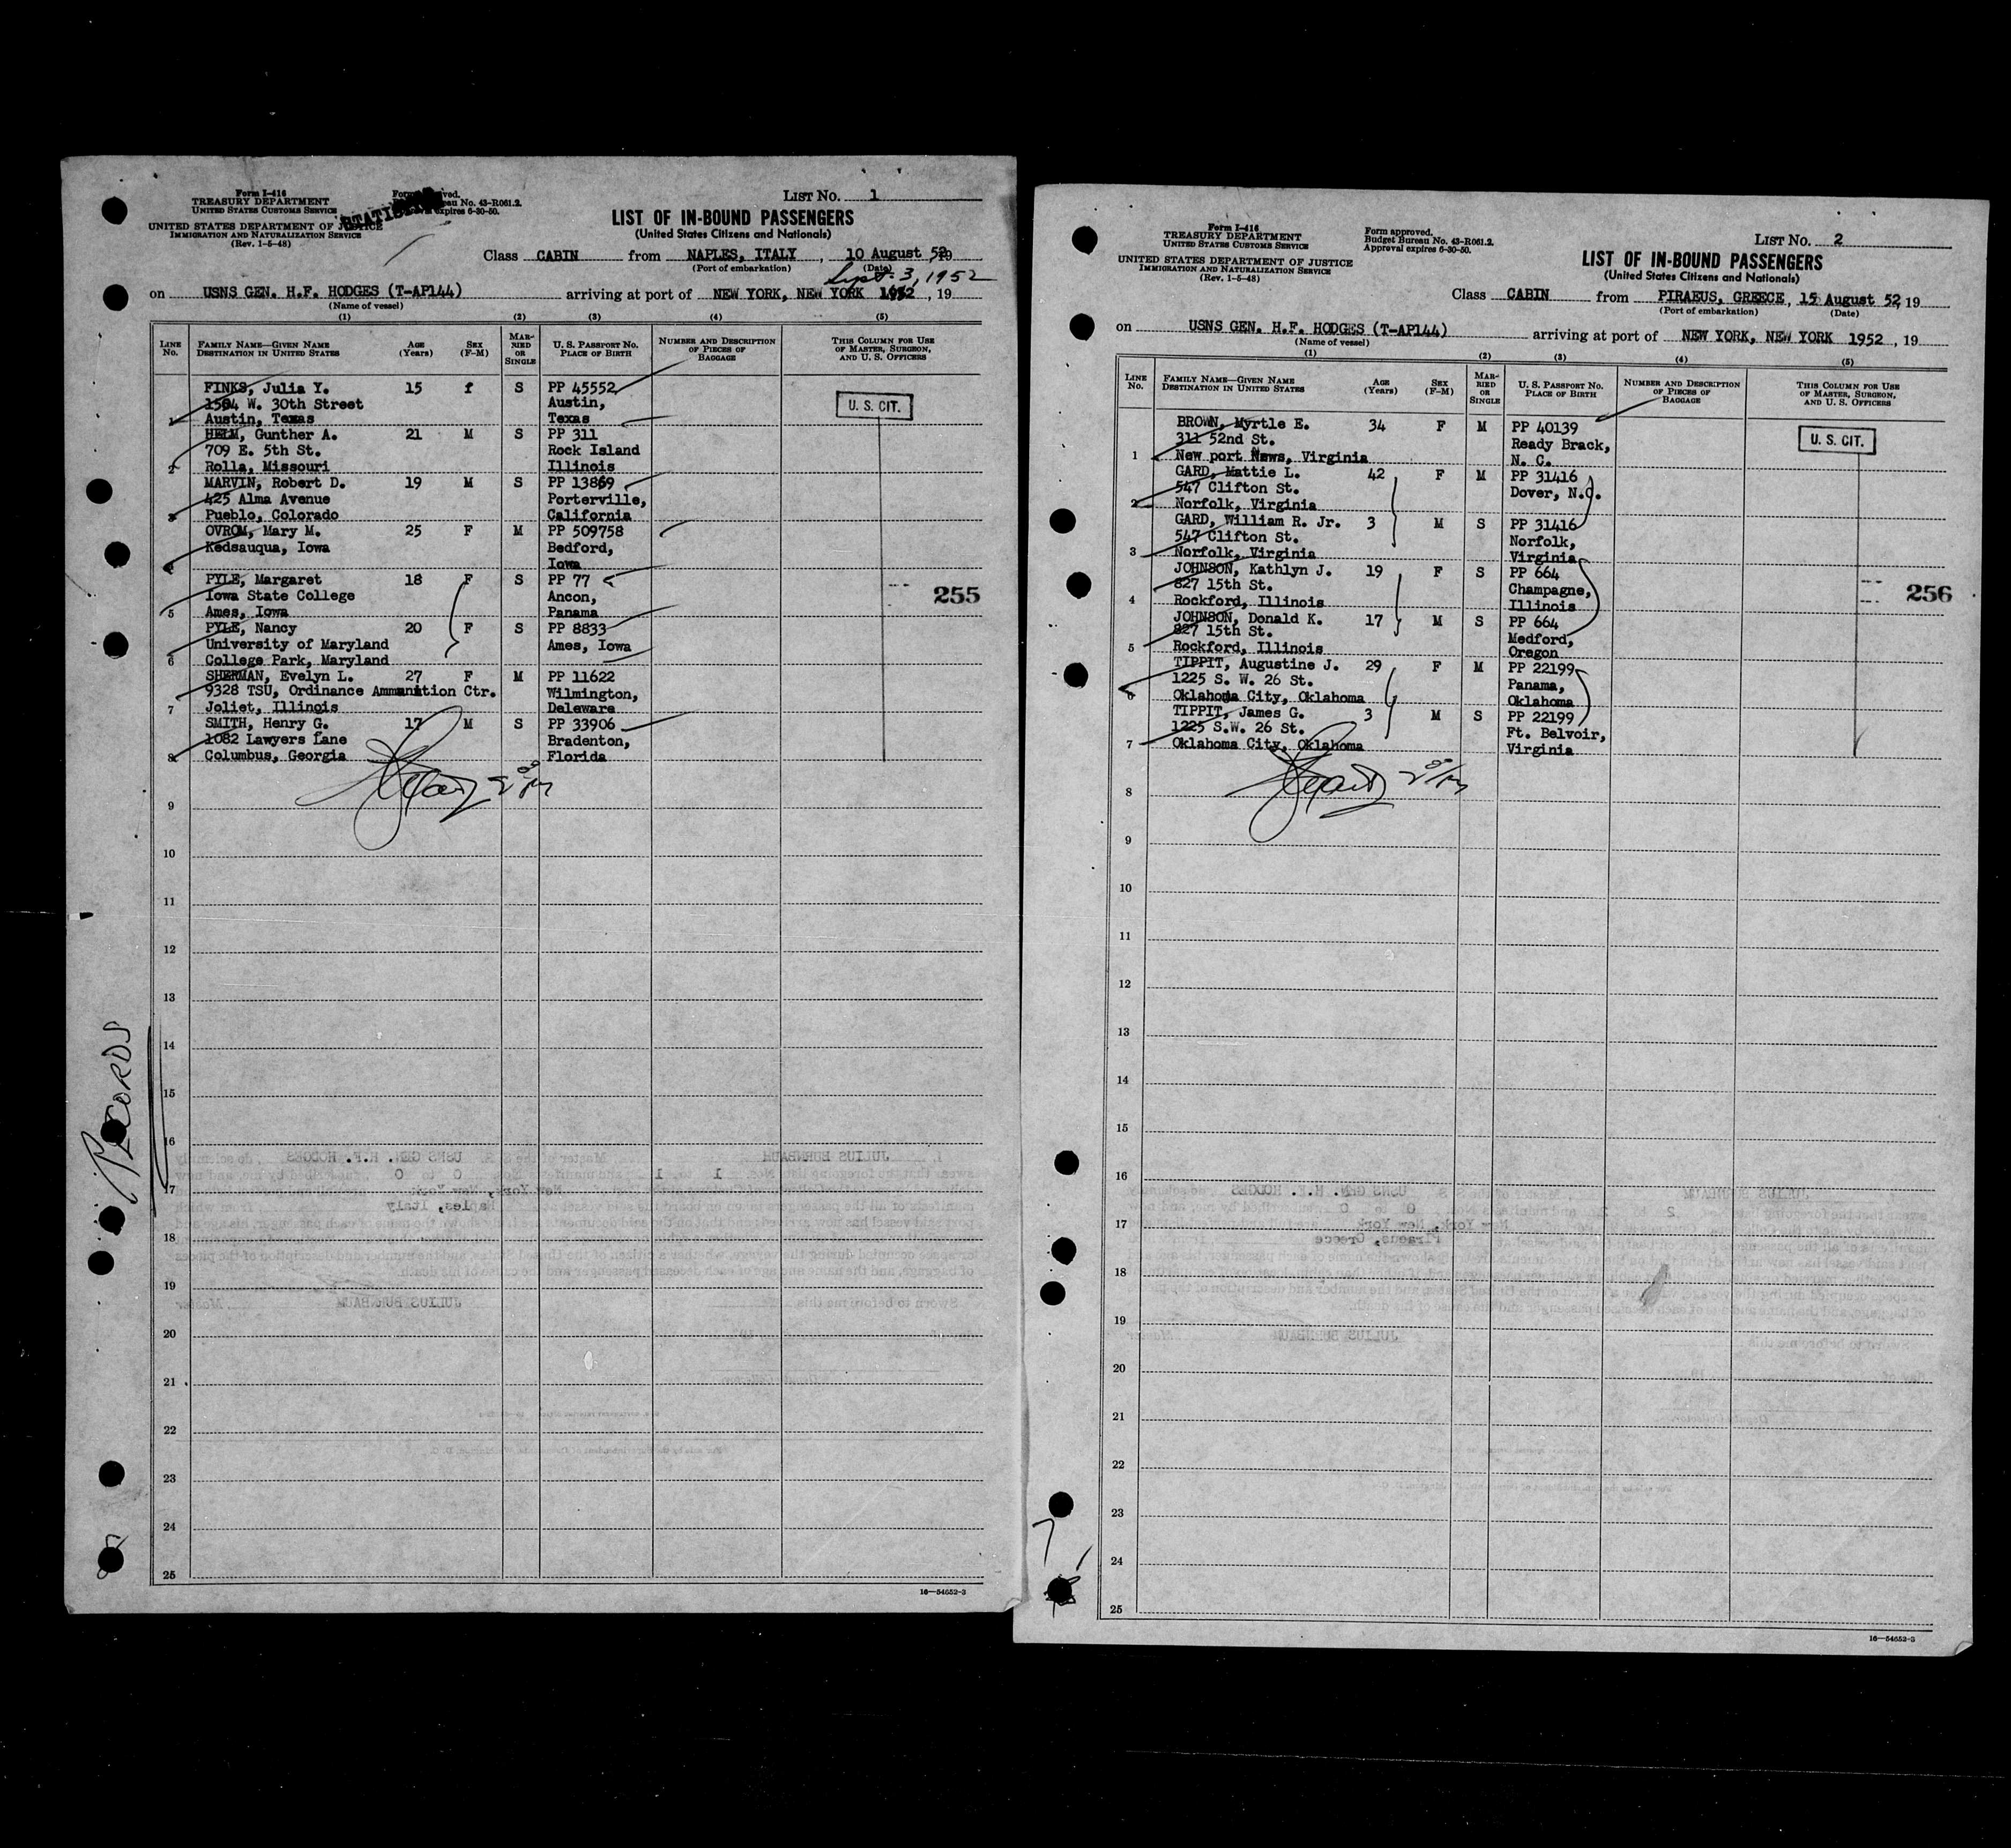 Form I-416
TREASURY DEPARTMENT
UNITED STATES CUSTOMS SERVICE
UNITED STATES DEPARTMENT OF JUSTICE
IMMIGRATION AND NATURALIZATION SERVICE
(Rev. 1-5-48)
No. 43-R061.2.
expires 6-30-50.
LIST NO. 1
LIST OF IN-BOUND PASSENGERS
(United States Citizens and Nationals)
Class CABIN from NAPLES, ITALY, 10 August 52, 19
(Port of embarkation) (Date)
Sept. 3, 1952
on USNS GEN. H.F. HODGES (T-AP144) arriving at port of NEW YORK, NEW YORK 1952, 19
(Name of vessel)
(1) (2) (3) (4) (5)
LINE No. FAMILY NAME—GIVEN NAME DESTINATION IN UNITED STATES AGE (Years) SEX (F-M) MARRIED OR SINGLE U. S. PASSPORT NO. PLACE OF BIRTH NUMBER AND DESCRIPTION OF PIECES OF BAGGAGE THIS COLUMN FOR USE OF MASTER, SURGEON, AND U. S. OFFICERS
FINKS, Julia Y. 15 f S PP 45552
1504 W. 30th Street Austin, U. S. CIT.
1 Austin, Texas Texas
HELM, Gunther A. 21 M S PP 311
709 E. 5th St. Rock Island
2 Rolla, Missouri Illinois
MARVIN, Robert D. 19 M S PP 13869
425 Alma Avenue Porterville,
3 Pueblo, Colorado California
OVROM, Mary M. 25 F M PP 509758
Kedsauqua, Iowa Bedford,
4 Iowa
PYLE, Margaret 18 F S PP 77
Iowa State College Ancon, 255
5 Ames, Iowa Panama
PYLE, Nancy 20 F S PP 8833
University of Maryland Ames, Iowa
6 College Park, Maryland
SHERMAN, Evelyn L. 27 F M PP 11622
9328 TSU, Ordinance Ammunition Ctr. Wilmington,
7 Joliet, Illinois Delaware
SMITH, Henry G. 17 M S PP 33906
1082 Lawyers Lane Bradenton,
8 Columbus, Georgia Florida
9
10
11
12
13
14
15
16
17
18
19
20
21
22
23
24
25
16—54652-3
RECORDS
Form I-416
TREASURY DEPARTMENT
UNITED STATES CUSTOMS SERVICE
UNITED STATES DEPARTMENT OF JUSTICE
IMMIGRATION AND NATURALIZATION SERVICE
(Rev. 1-5-48)
Form approved.
Budget Bureau No. 43-R061.2.
Approval expires 6-30-50.
LIST NO. 2
LIST OF IN-BOUND PASSENGERS
(United States Citizens and Nationals)
Class CABIN from PIRAEUS, GREECE, 15 August 52, 19
(Port of embarkation) (Date)
on USNS GEN. H.F. HODGES (T-AP144) arriving at port of NEW YORK, NEW YORK 1952, 19
(Name of vessel)
(1) (2) (3) (4) (5)
LINE No. FAMILY NAME—GIVEN NAME DESTINATION IN UNITED STATES AGE (Years) SEX (F-M) MARRIED OR SINGLE U. S. PASSPORT NO. PLACE OF BIRTH NUMBER AND DESCRIPTION OF PIECES OF BAGGAGE THIS COLUMN FOR USE OF MASTER, SURGEON, AND U. S. OFFICERS
BROWN, Myrtle E. 34 F M PP 40139
311 52nd St. Ready Brack, U. S. CIT.
1 New port News, Virginia N. C.
GARD, Mattie L. 42 F M PP 31416
547 Clifton St. Dover, N.C.
2 Norfolk, Virginia
GARD, William R. Jr. 3 M S PP 31416
547 Clifton St. Norfolk,
3 Norfolk, Virginia Virginia
JOHNSON, Kathlyn J. 19 F S PP 664
827 15th St. Champagne, 256
4 Rockford, Illinois Illinois
JOHNSON, Donald K. 17 M S PP 664
827 15th St. Medford,
5 Rockford, Illinois Oregon
TIPPIT, Augustine J. 29 F M PP 22199
1225 S. W. 26 St. Panama,
6 Oklahoma City, Oklahoma Oklahoma
TIPPIT, James G. 3 M S PP 22199
1225 S.W. 26 St. Ft. Belvoir,
7 Oklahoma City, Oklahoma Virginia
8
9
10
11
12
13
14
15
16
17
18
19
20
21
22
23
24
25
16—54652-3